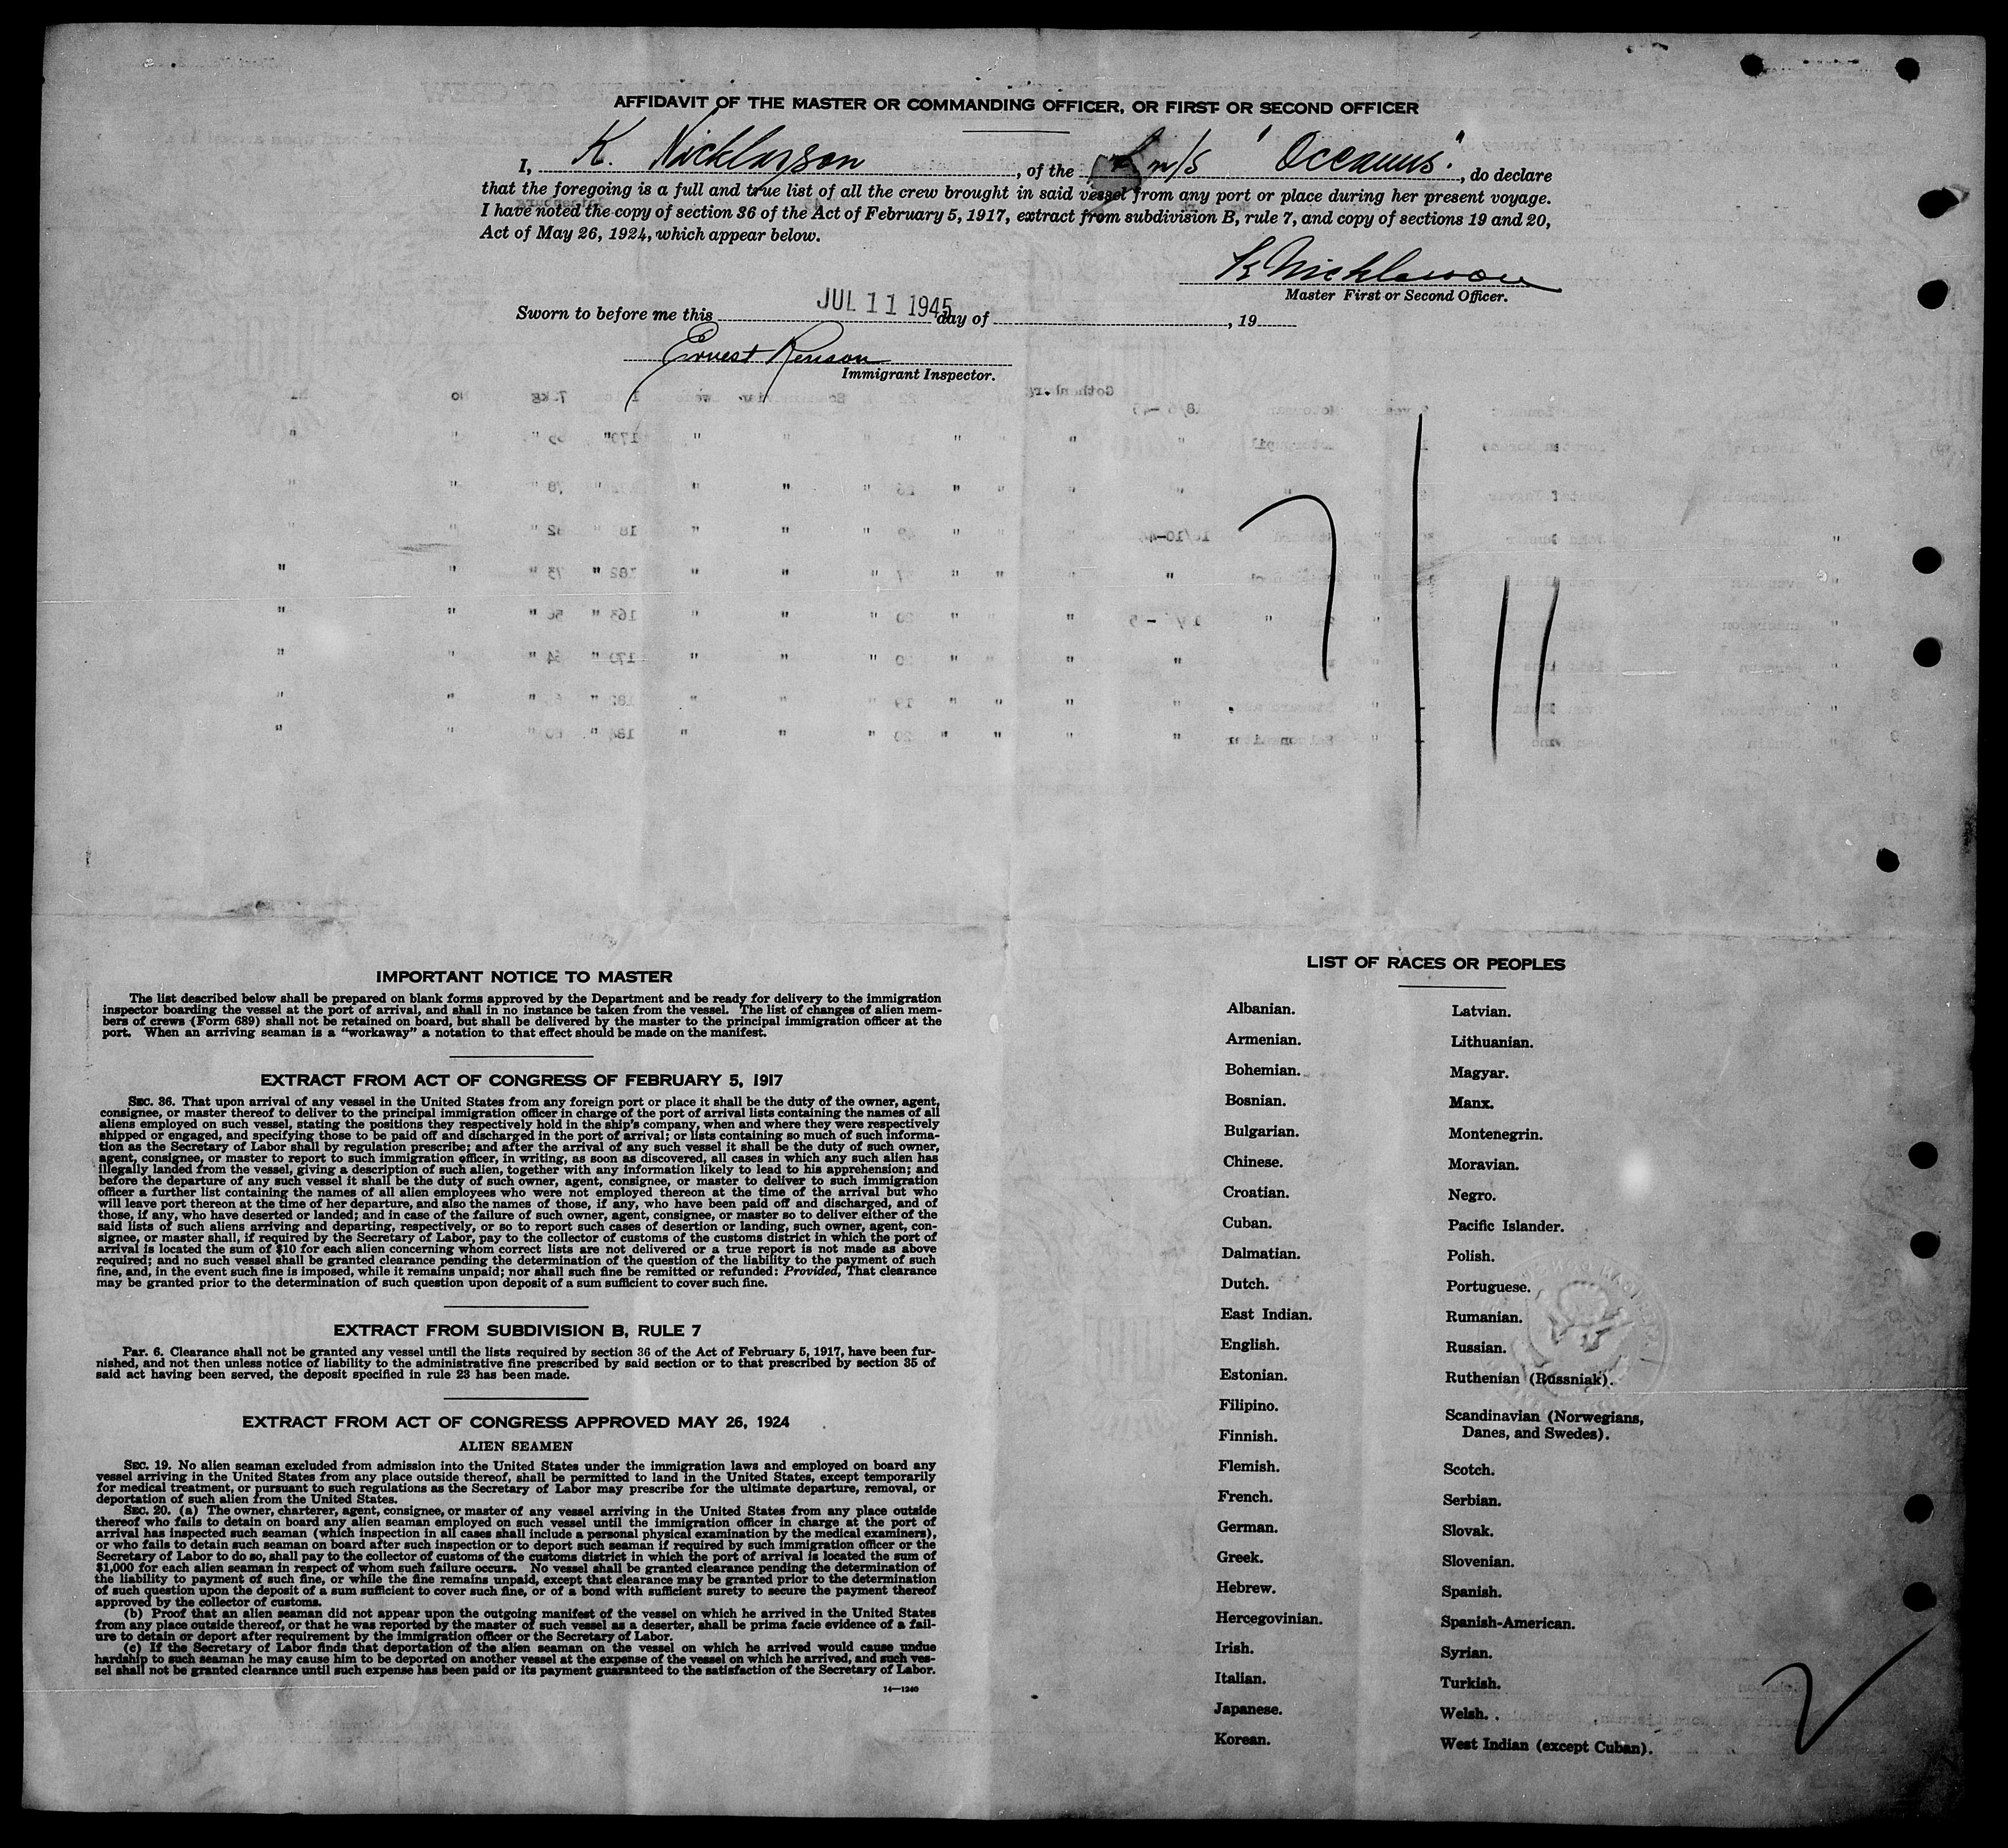 AFFIDAVIT OF THE MASTER OR COMMANDING OFFICER, OR FIRST OR SECOND OFFICER
I, K. Nicklasson, of the m/s "Oceanus", do declare
that the foregoing is a full and true list of all the crew brought in said vessel from any port or place during her present voyage.
I have noted the copy of section 36 of the Act of February 5, 1917, extract from subdivision B, rule 7, and copy of sections 19 and 20,
Act of May 26, 1924, which appear below.
K Nicklasson
Master First or Second Officer.
Sworn to before me this JUL 11 1945 day of , 19
Ernest Renson
Immigrant Inspector.
7/11
IMPORTANT NOTICE TO MASTER
The list described below shall be prepared on blank forms approved by the Department and be ready for delivery to the immigration
inspector boarding the vessel at the port of arrival, and shall in no instance be taken from the vessel. The list of changes of alien mem-
bers of crews (Form 689) shall not be retained on board, but shall be delivered by the master to the principal immigration officer at the
port. When an arriving seaman is a "workaway" a notation to that effect should be made on the manifest.
EXTRACT FROM ACT OF CONGRESS OF FEBRUARY 5, 1917
SEC. 36. That upon arrival of any vessel in the United States from any foreign port or place it shall be the duty of the owner, agent,
consignee, or master thereof to deliver to the principal immigration officer in charge of the port of arrival lists containing the names of all
aliens employed on such vessel, stating the positions they respectively hold in the ship's company, when and where they were respectively
shipped or engaged, and specifying those to be paid off and discharged in the port of arrival; or lists containing so much of such informa-
tion as the Secretary of Labor shall by regulation prescribe; and after the arrival of any such vessel it shall be the duty of such owner,
agent, consignee, or master to report to such immigration officer, in writing, as soon as discovered, all cases in which any such alien has
illegally landed from the vessel, giving a description of such alien, together with any information likely to lead to his apprehension; and
before the departure of any such vessel it shall be the duty of such owner, agent, consignee, or master to deliver to such immigration
officer a further list containing the names of all alien employees who were not employed thereon at the time of the arrival but who
will leave port thereon at the time of her departure, and also the names of those, if any, who have been paid off and discharged, and of
those, if any, who have deserted or landed; and in case of the failure of such owner, agent, consignee, or master so to deliver either of the
said lists of such aliens arriving and departing, respectively, or so to report such cases of desertion or landing, such owner, agent, con-
signee, or master shall, if required by the Secretary of Labor, pay to the collector of customs of the customs district in which the port of
arrival is located the sum of $10 for each alien concerning whom correct lists are not delivered or a true report is not made as above
required; and no such vessel shall be granted clearance pending the determination of the question of the liability to the payment of such
fine, and, in the event such fine is imposed, while it remains unpaid; nor shall such fine be remitted or refunded: Provided, That clearance
may be granted prior to the determination of such question upon deposit of a sum sufficient to cover such fine.
EXTRACT FROM SUBDIVISION B, RULE 7
Par. 6. Clearance shall not be granted any vessel until the lists required by section 36 of the Act of February 5, 1917, have been fur-
nished, and not then unless notice of liability to the administrative fine prescribed by said section or to that prescribed by section 35 of
said act having been served, the deposit specified in rule 23 has been made.
EXTRACT FROM ACT OF CONGRESS APPROVED MAY 26, 1924
ALIEN SEAMEN
SEC. 19. No alien seaman excluded from admission into the United States under the immigration laws and employed on board any
vessel arriving in the United States from any place outside thereof, shall be permitted to land in the United States, except temporarily
for medical treatment, or pursuant to such regulations as the Secretary of Labor may prescribe for the ultimate departure, removal, or
deportation of such alien from the United States.
SEC. 20. (a) The owner, charterer, agent, consignee, or master of any vessel arriving in the United States from any place outside
thereof who fails to detain on board any alien seaman employed on such vessel until the immigration officer in charge at the port of
arrival has inspected such seaman (which inspection in all cases shall include a personal physical examination by the medical examiners),
or who fails to detain such seaman on board after such inspection or to deport such seaman if required by such immigration officer or the
Secretary of Labor to do so, shall pay to the collector of customs of the customs district in which the port of arrival is located the sum of
$1,000 for each alien seaman in respect of whom such failure occurs. No vessel shall be granted clearance pending the determination of
the liability to payment of such fine, or while the fine remains unpaid, except that clearance may be granted prior to the determination
of such question upon the deposit of a sum sufficient to cover such fine, or of a bond with sufficient surety to secure the payment thereof
approved by the collector of customs.
(b) Proof that an alien seaman did not appear upon the outgoing manifest of the vessel on which he arrived in the United States
from any place outside thereof, or that he was reported by the master of such vessel as a deserter, shall be prima facie evidence of a fail-
ure to detain or deport after requirement by the immigration officer or the Secretary of Labor.
(c) If the Secretary of Labor finds that deportation of the alien seaman on the vessel on which he arrived would cause undue
hardship to such seaman he may cause him to be deported on another vessel at the expense of the vessel on which he arrived, and such ves-
sel shall not be granted clearance until such expense has been paid or its payment guaranteed to the satisfaction of the Secretary of Labor.
14—1240
LIST OF RACES OR PEOPLES
Albanian.
Armenian.
Bohemian.
Bosnian.
Bulgarian.
Chinese.
Croatian.
Cuban.
Dalmatian.
Dutch.
East Indian.
English.
Estonian.
Filipino.
Finnish.
Flemish.
French.
German.
Greek.
Hebrew.
Hercegovinian.
Irish.
Italian.
Japanese.
Korean.
Latvian.
Lithuanian.
Magyar.
Manx.
Montenegrin.
Moravian.
Negro.
Pacific Islander.
Polish.
Portuguese.
Rumanian.
Russian.
Ruthenian (Russniak).
Scandinavian (Norwegians,
Danes, and Swedes).
Scotch.
Serbian.
Slovak.
Slovenian.
Spanish.
Spanish-American.
Syrian.
Turkish.
Welsh.
West Indian (except Cuban).